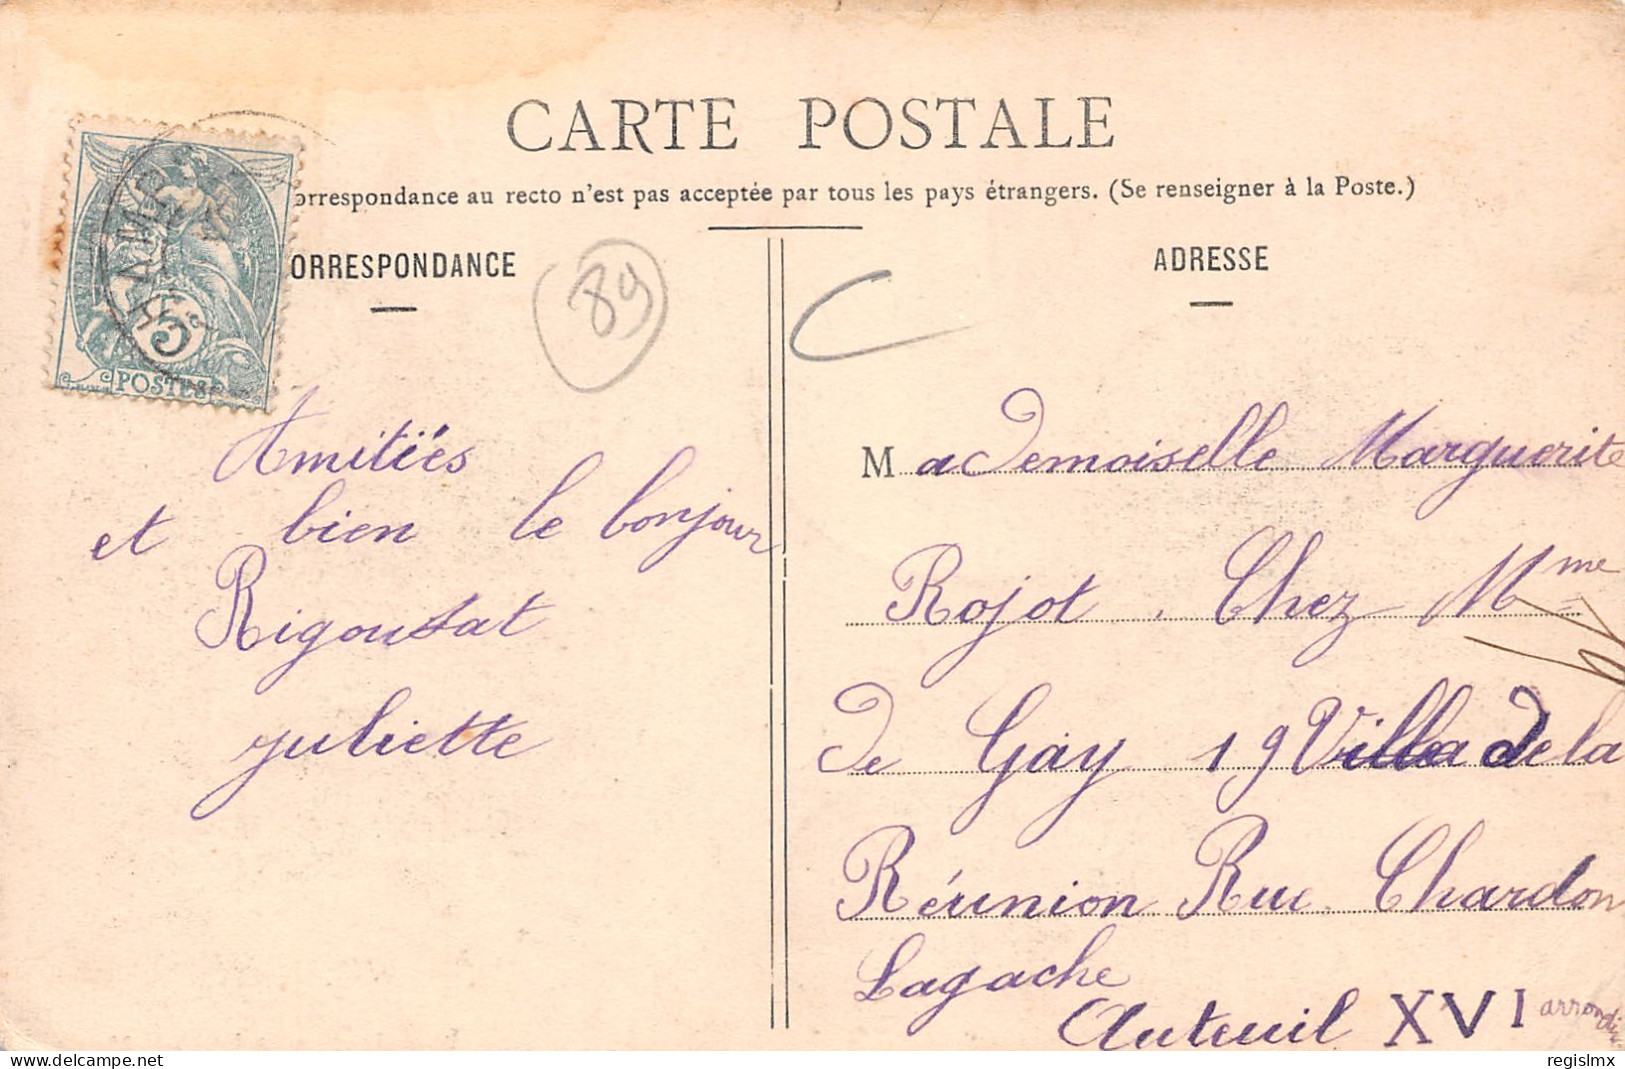 CARTE POSTALE
orrespondance au recto n'est pas acceptée par tous les pays étrangers. (Se renseigner à la Poste.)
ORRESPONDANCE
ADRESSE
89
5
POSTES
Amitiés
et bien le bonjour
Rigoutat
juliette
Mademoiselle Marguerite
Rojot. Chez Mme
de Gay 19 Villa de la
Réunion Rue Chardon
Lagache
Auteuil XVI arrondis.
delcampe.net
regislmx